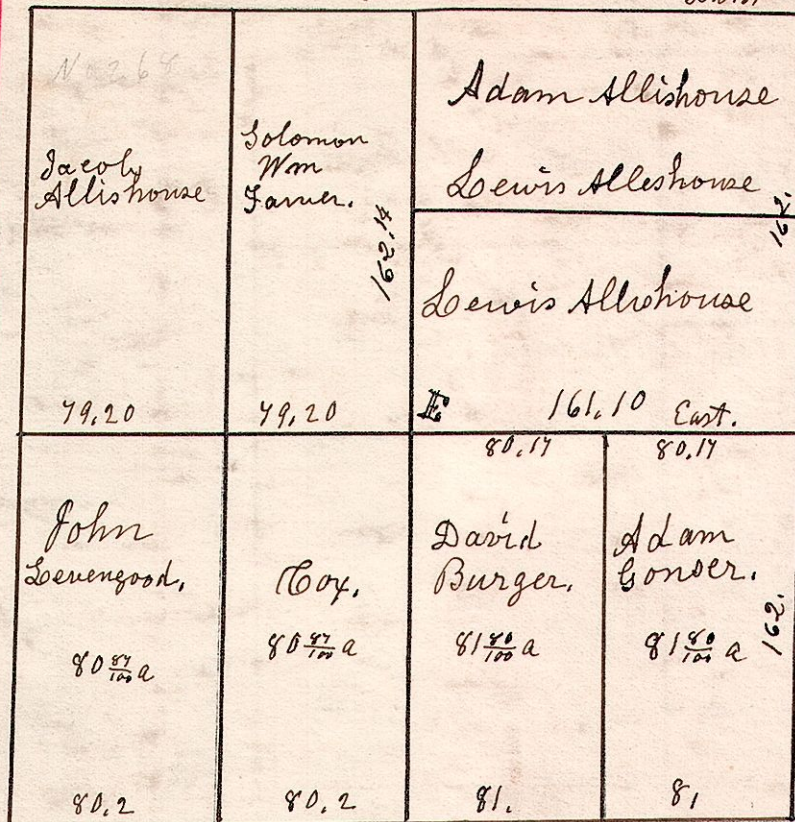 No 268
Jacob
Allishouse
79,20
Solomon
Wm
Farver.
162.14
79,20
Adam Allishouse
Lewis Alleshouse
162.
Lewis Allishouse
E 161,10 East.
John
Levengood,
80 87/100 a
80,2
Cox,
80 87/100 a
80,2
80,17
David
Burger,
81 80/100 a
81.
80,17
Adam
Gonser,
162.
81 80/100 a
81